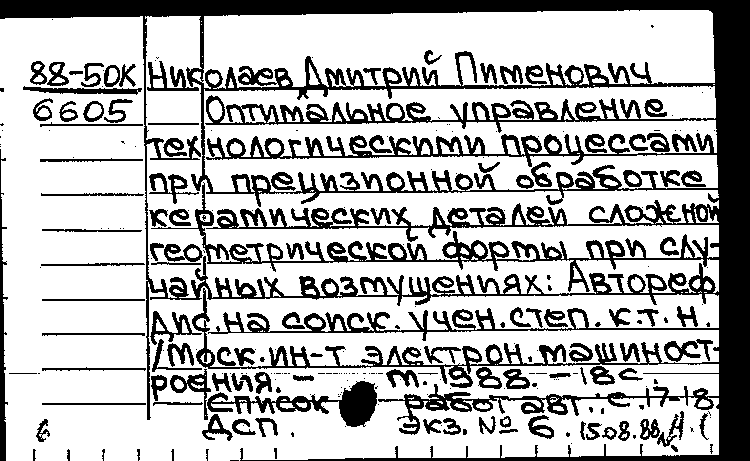 88-50К Николаев Дмитрий Пименович
6605 Оптимальное управление
технологическими процессами
при прецизионной обработке
керамических деталей сложной
геометрической формы при слу-
чайных возмущениях: Автореф.
дис. на соиск. учен. степ. к.т.н.
/Моск. ин-т электрон. машиност-
роения. - М., 1988. - 18 с.
Список работ авт.: с. 17-18.
Дсп. Экз. № 6. 15.08.88